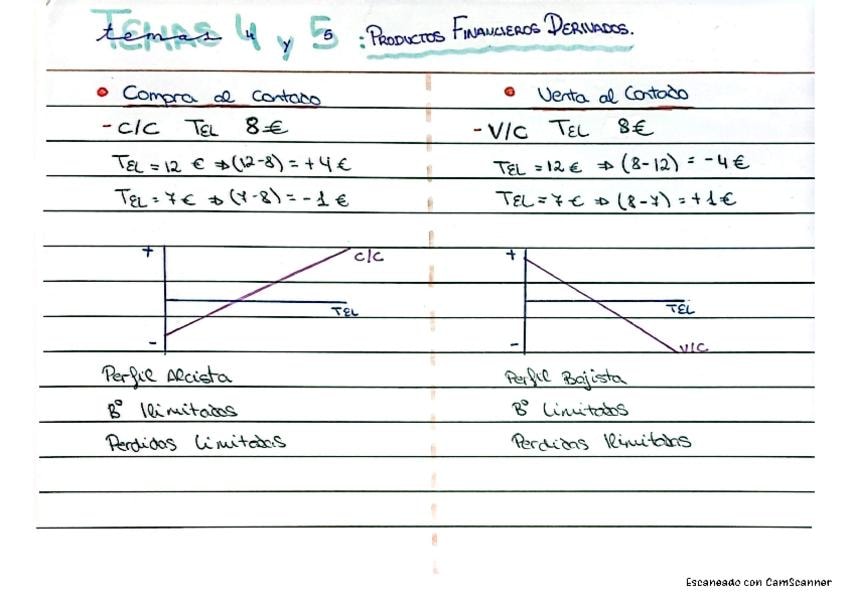 Temas 4 y 5 : PRODUCTOS FINANCIEROS DERIVADOS.
• Compra al contado
- C/C TEL 8€
TEL = 12 € ⇒ (12-8) = +4€
TEL = 7€ ⇒ (7-8) = -1€
+
C/C
TEL
-
Perfil Alcista
Bº Ilimitados
Perdidas Limitadas
• Venta al Contado
- V/C TEL 8€
TEL = 12€ ⇒ (8-12) = -4€
TEL = 7€ ⇒ (8-7) = +1€
+
TEL
-
V/C
Perfil Bajista
Bº Limitados
Perdidas Ilimitadas
Escaneado con CamScanner